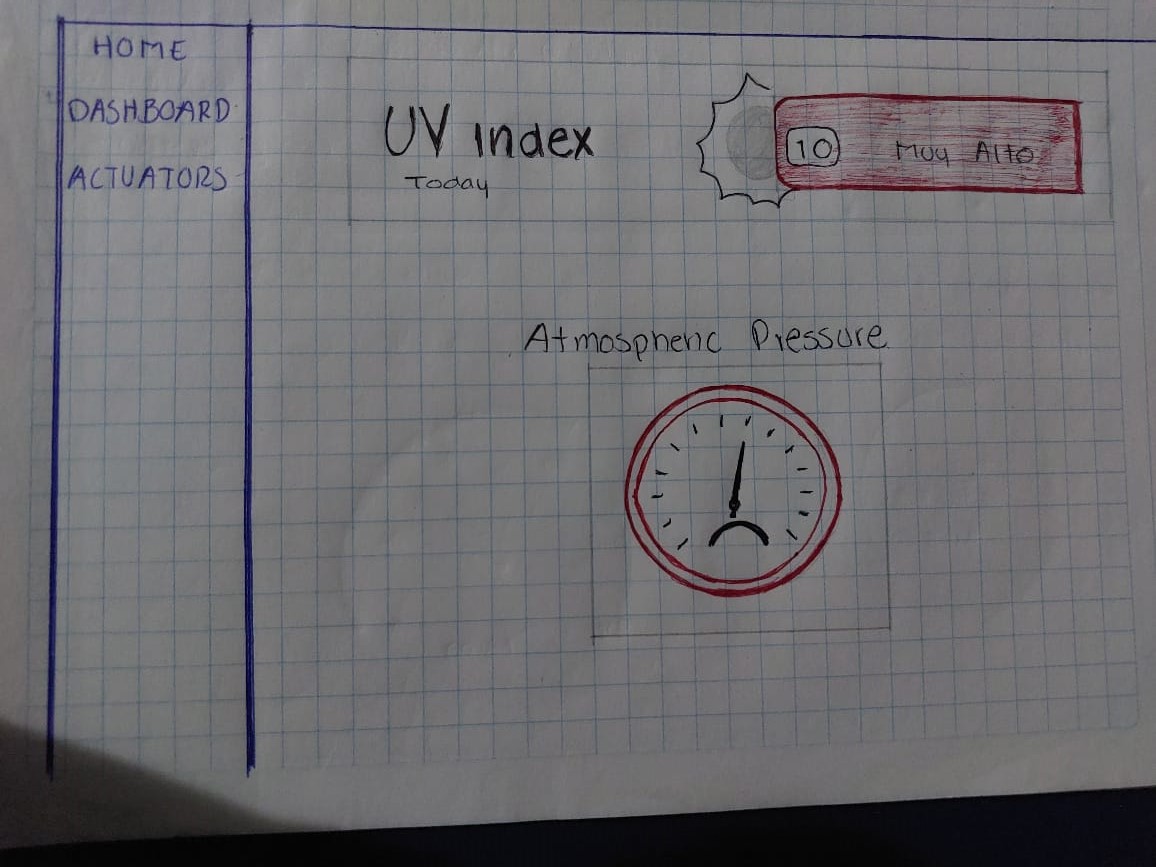 HOME
DASHBOARD
ACTUATORS
UV Index
Today
10 Muy Alto
Atmospheric Pressure